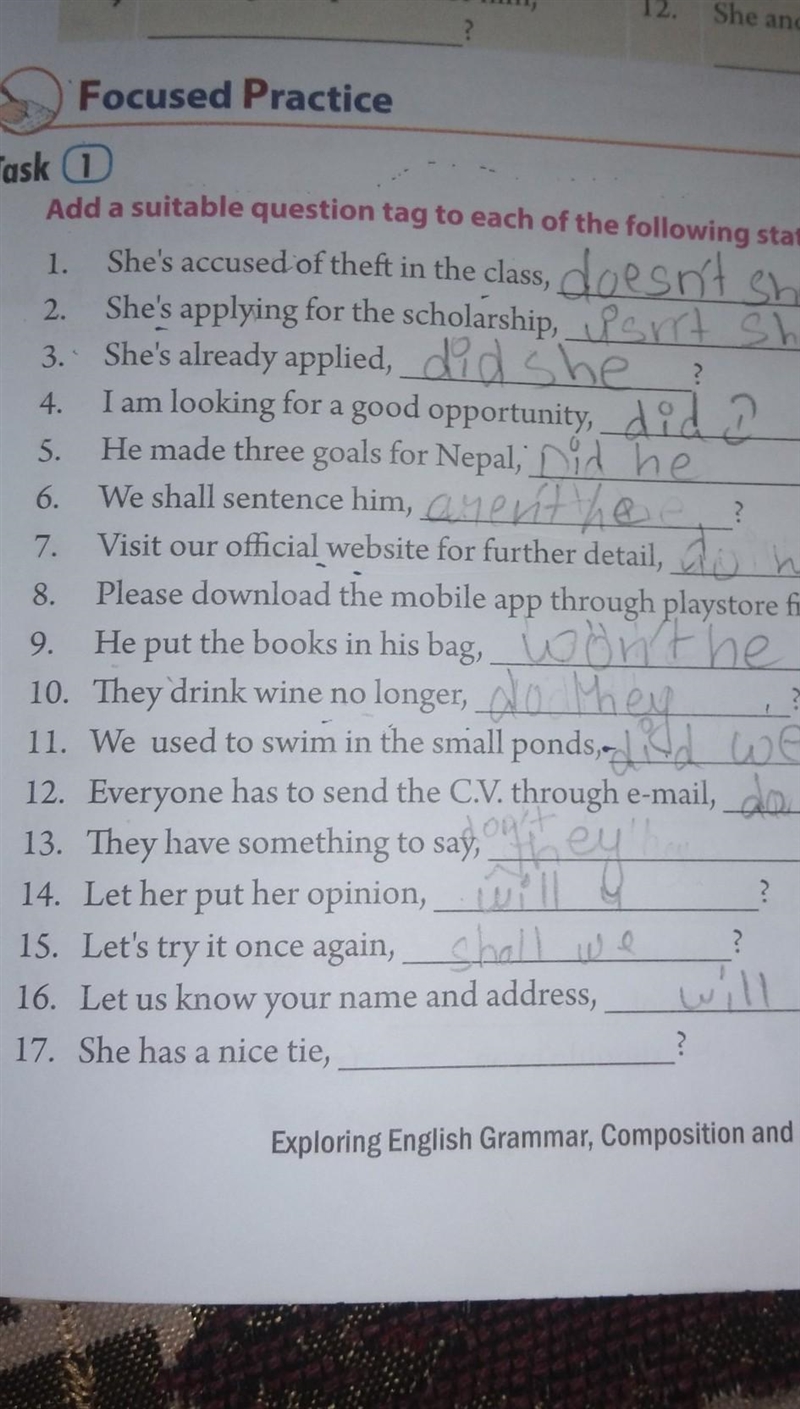 ?
12. She and
Focused Practice
Task 1
Add a suitable question tag to each of the following stat
1. She's accused of theft in the class, doesn't sh
2. She's applying for the scholarship, isn't sh
3. She's already applied, did she ?
4. I am looking for a good opportunity, did I
5. He made three goals for Nepal, Did he
6. We shall sentence him, aren't he ?
7. Visit our official website for further detail, do
8. Please download the mobile app through playstore fi
9. He put the books in his bag, won't he
10. They drink wine no longer, do they ?
11. We used to swim in the small ponds, did we
12. Everyone has to send the C.V. through e-mail, do
13. They have something to say, don't they
14. Let her put her opinion, will y ?
15. Let's try it once again, shall we ?
16. Let us know your name and address, will
17. She has a nice tie, ?
Exploring English Grammar, Composition and